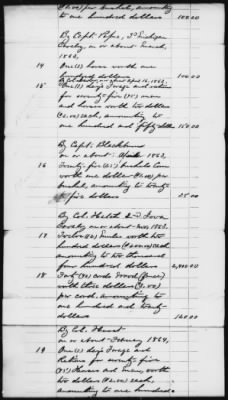 ($1.00) per bushel, amounting
to one hundred dollars 100.00
By Capt. Pope, 3d Michigan
Cavalry, on or about March,
1863,
14 One (1) horse worth one
hundred dollars 100.00
on or about April 16, 1863,
15 One (1) days forage and rations
for seventy five (75) men
and horses worth two dollars
($2.00) each, amounting to
one hundred and fifty dollars 150.00
By Capt. Blackburn
on or about April 1863,
16 Twenty-five (25) bushels corn
worth one dollar ($1.00) per
bushel, amounting to twenty
five dollars 25.00
By Col. Hatch 2nd Iowa
Cavalry on or about 1863.
17 Twelve (12) mules worth two
hundred dollars ($200.00) each
amounting to two thousand
four hundred dollars 2,400.00
18 Forty (40) cords wood
worth three dollars ($3.00)
per cord, amounting to
one hundred and twenty
dollars
By Col. Hurst
on or about February 1864,
19 One (1) days forage and
Rations for seventy five
(75) horses and men, worth
two dollars ($2.00) each,
amounting to one hundred